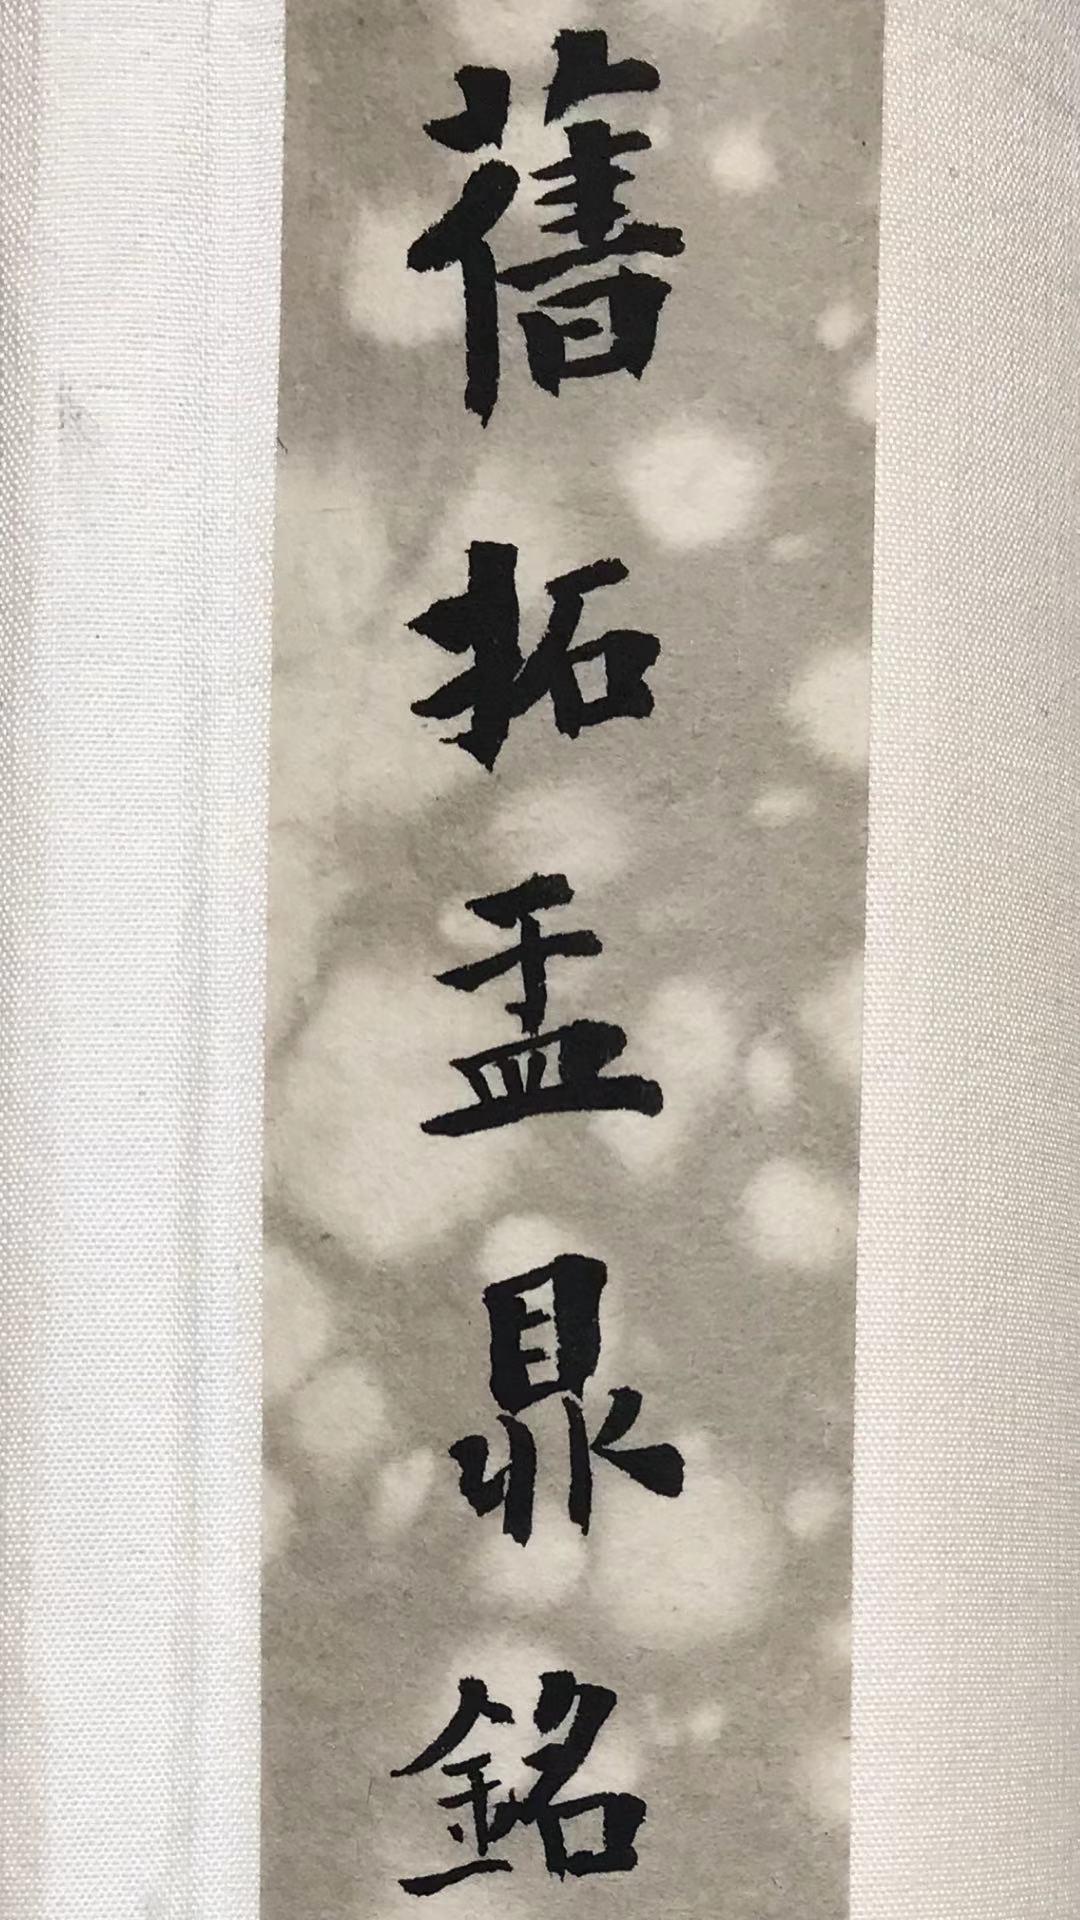 舊拓盂鼎銘